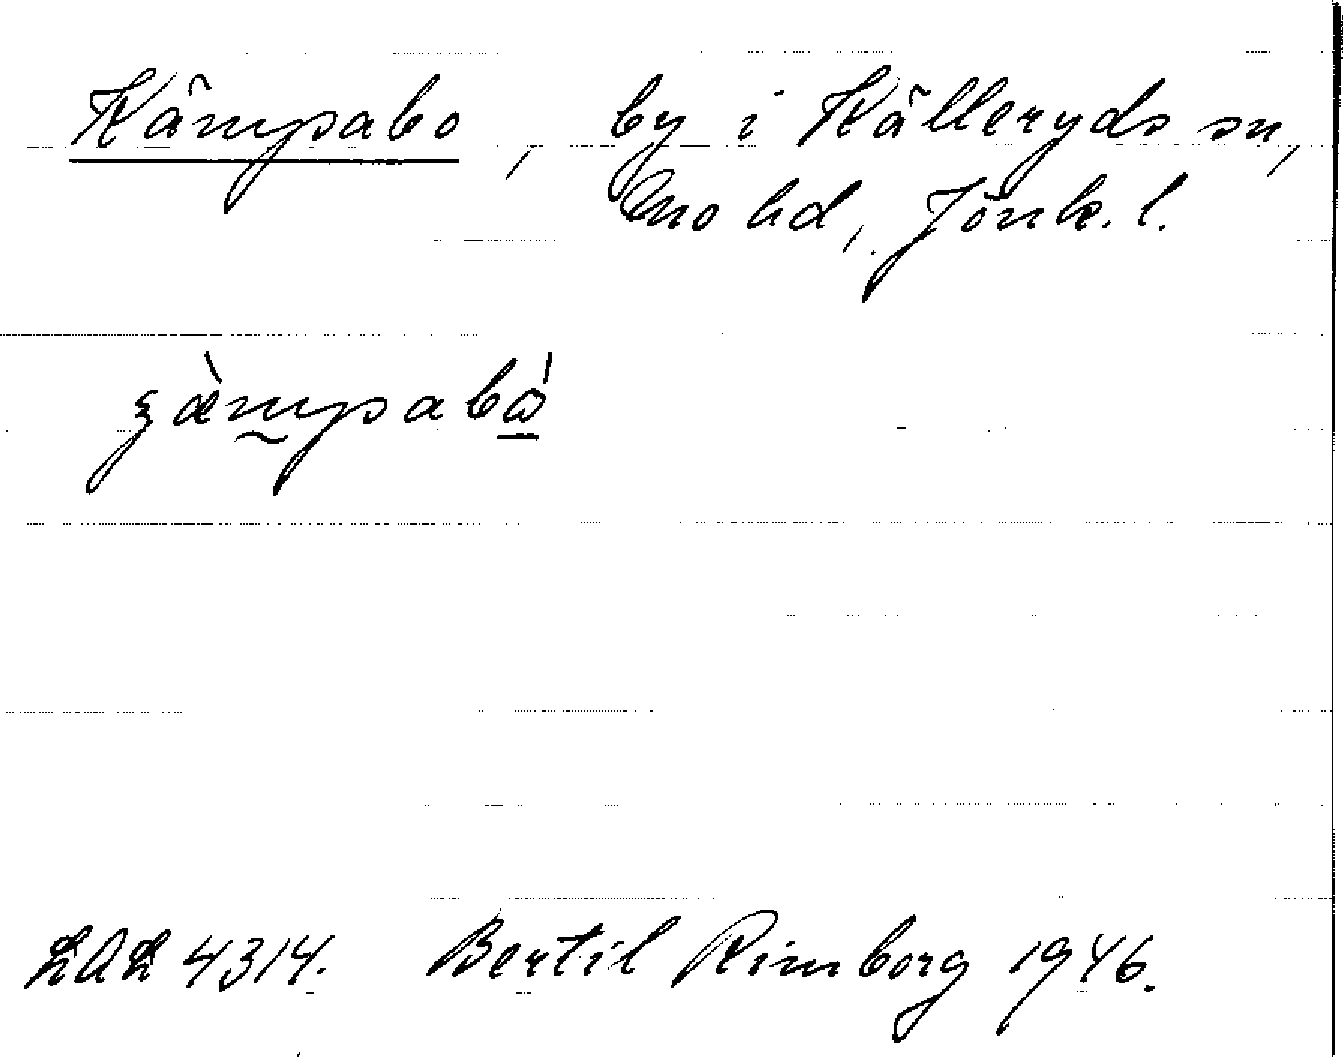 Kämpabo, by i Källeryds sn,
Mo hd, Jönk. l.
LAL 4314. Bertil Rimborg 1946.